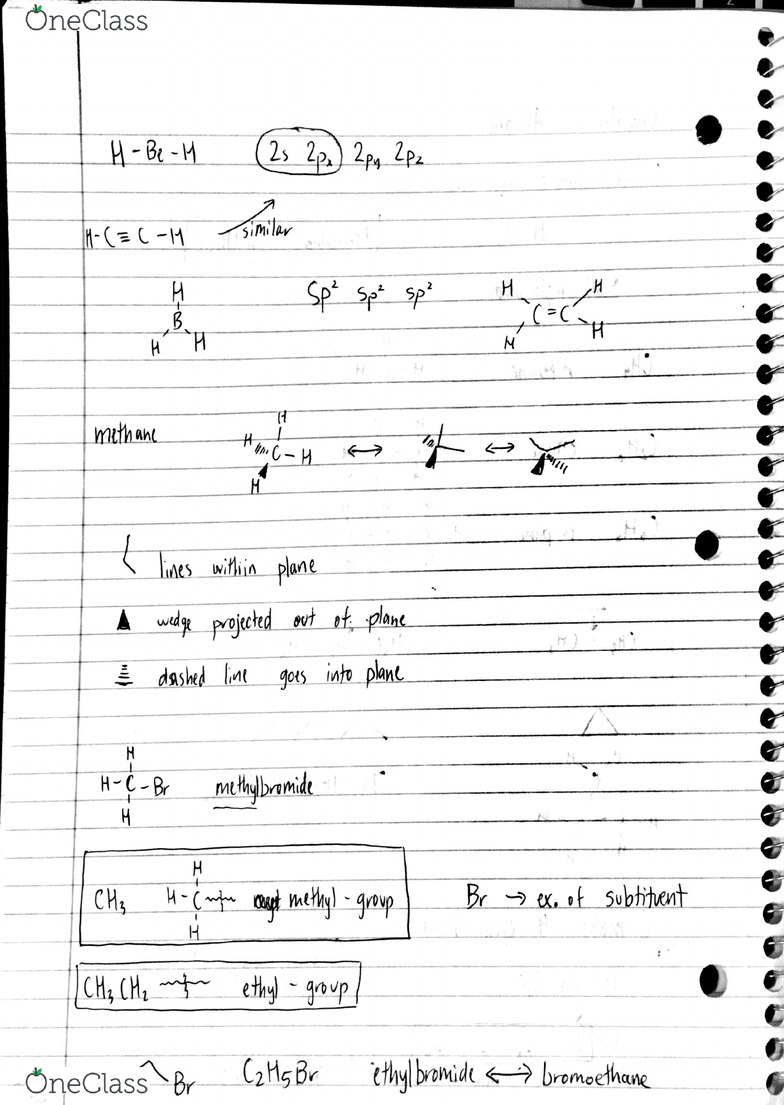 OneClass
H-Be-H 2s 2px 2py 2pz
H-C≡C-H similar
H
B
H H
Sp² sp² sp²
H H
C=C
H H
methane
H
H C-H
H
↔ ↔
lines within plane
wedge projected out of plane
dashed line goes into plane
H
H-C-Br methylbromide
H
H
CH3 H-C methyl-group Br → ex. of subtituent
H
CH3CH2 ethyl-group
OneClass Br C2H5Br ethylbromide ↔ bromoethane